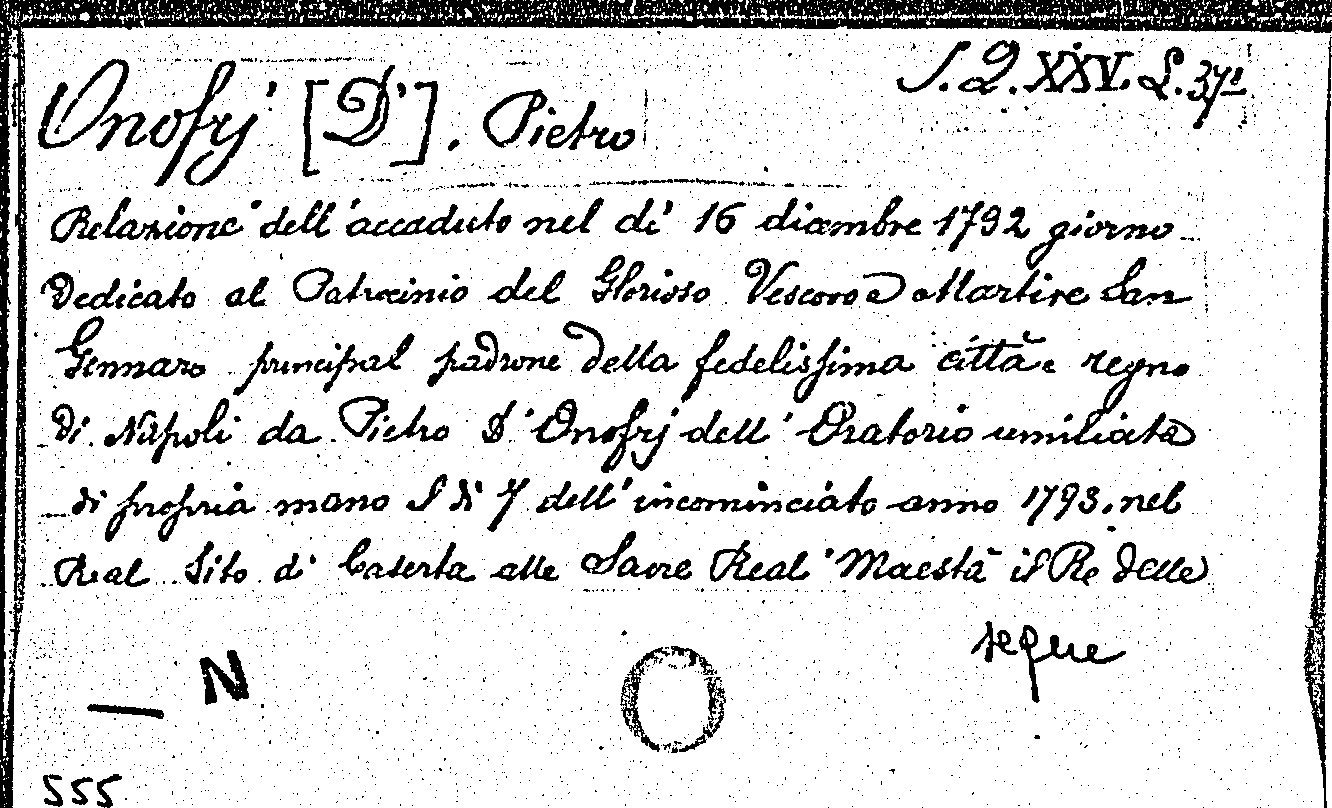 S. Q. XXV. L. 37¹
Onofrj [D']. Pietro
Relazione dell'accaduto nel dì 16 dicembre 1792 giorno
Dedicato al Patrocinio del Glorioso Vescovo e Martire San
Gennaro principal padrone della fedelissima città e regno
di Napoli da Pietro D'Onofrj dell' Oratorio umiliata
di propria mano di 7 dell' incominciato anno 1793. nel
Real Sito di Caserta alle Sacre Real Maestà il Re delle
segue
N
555